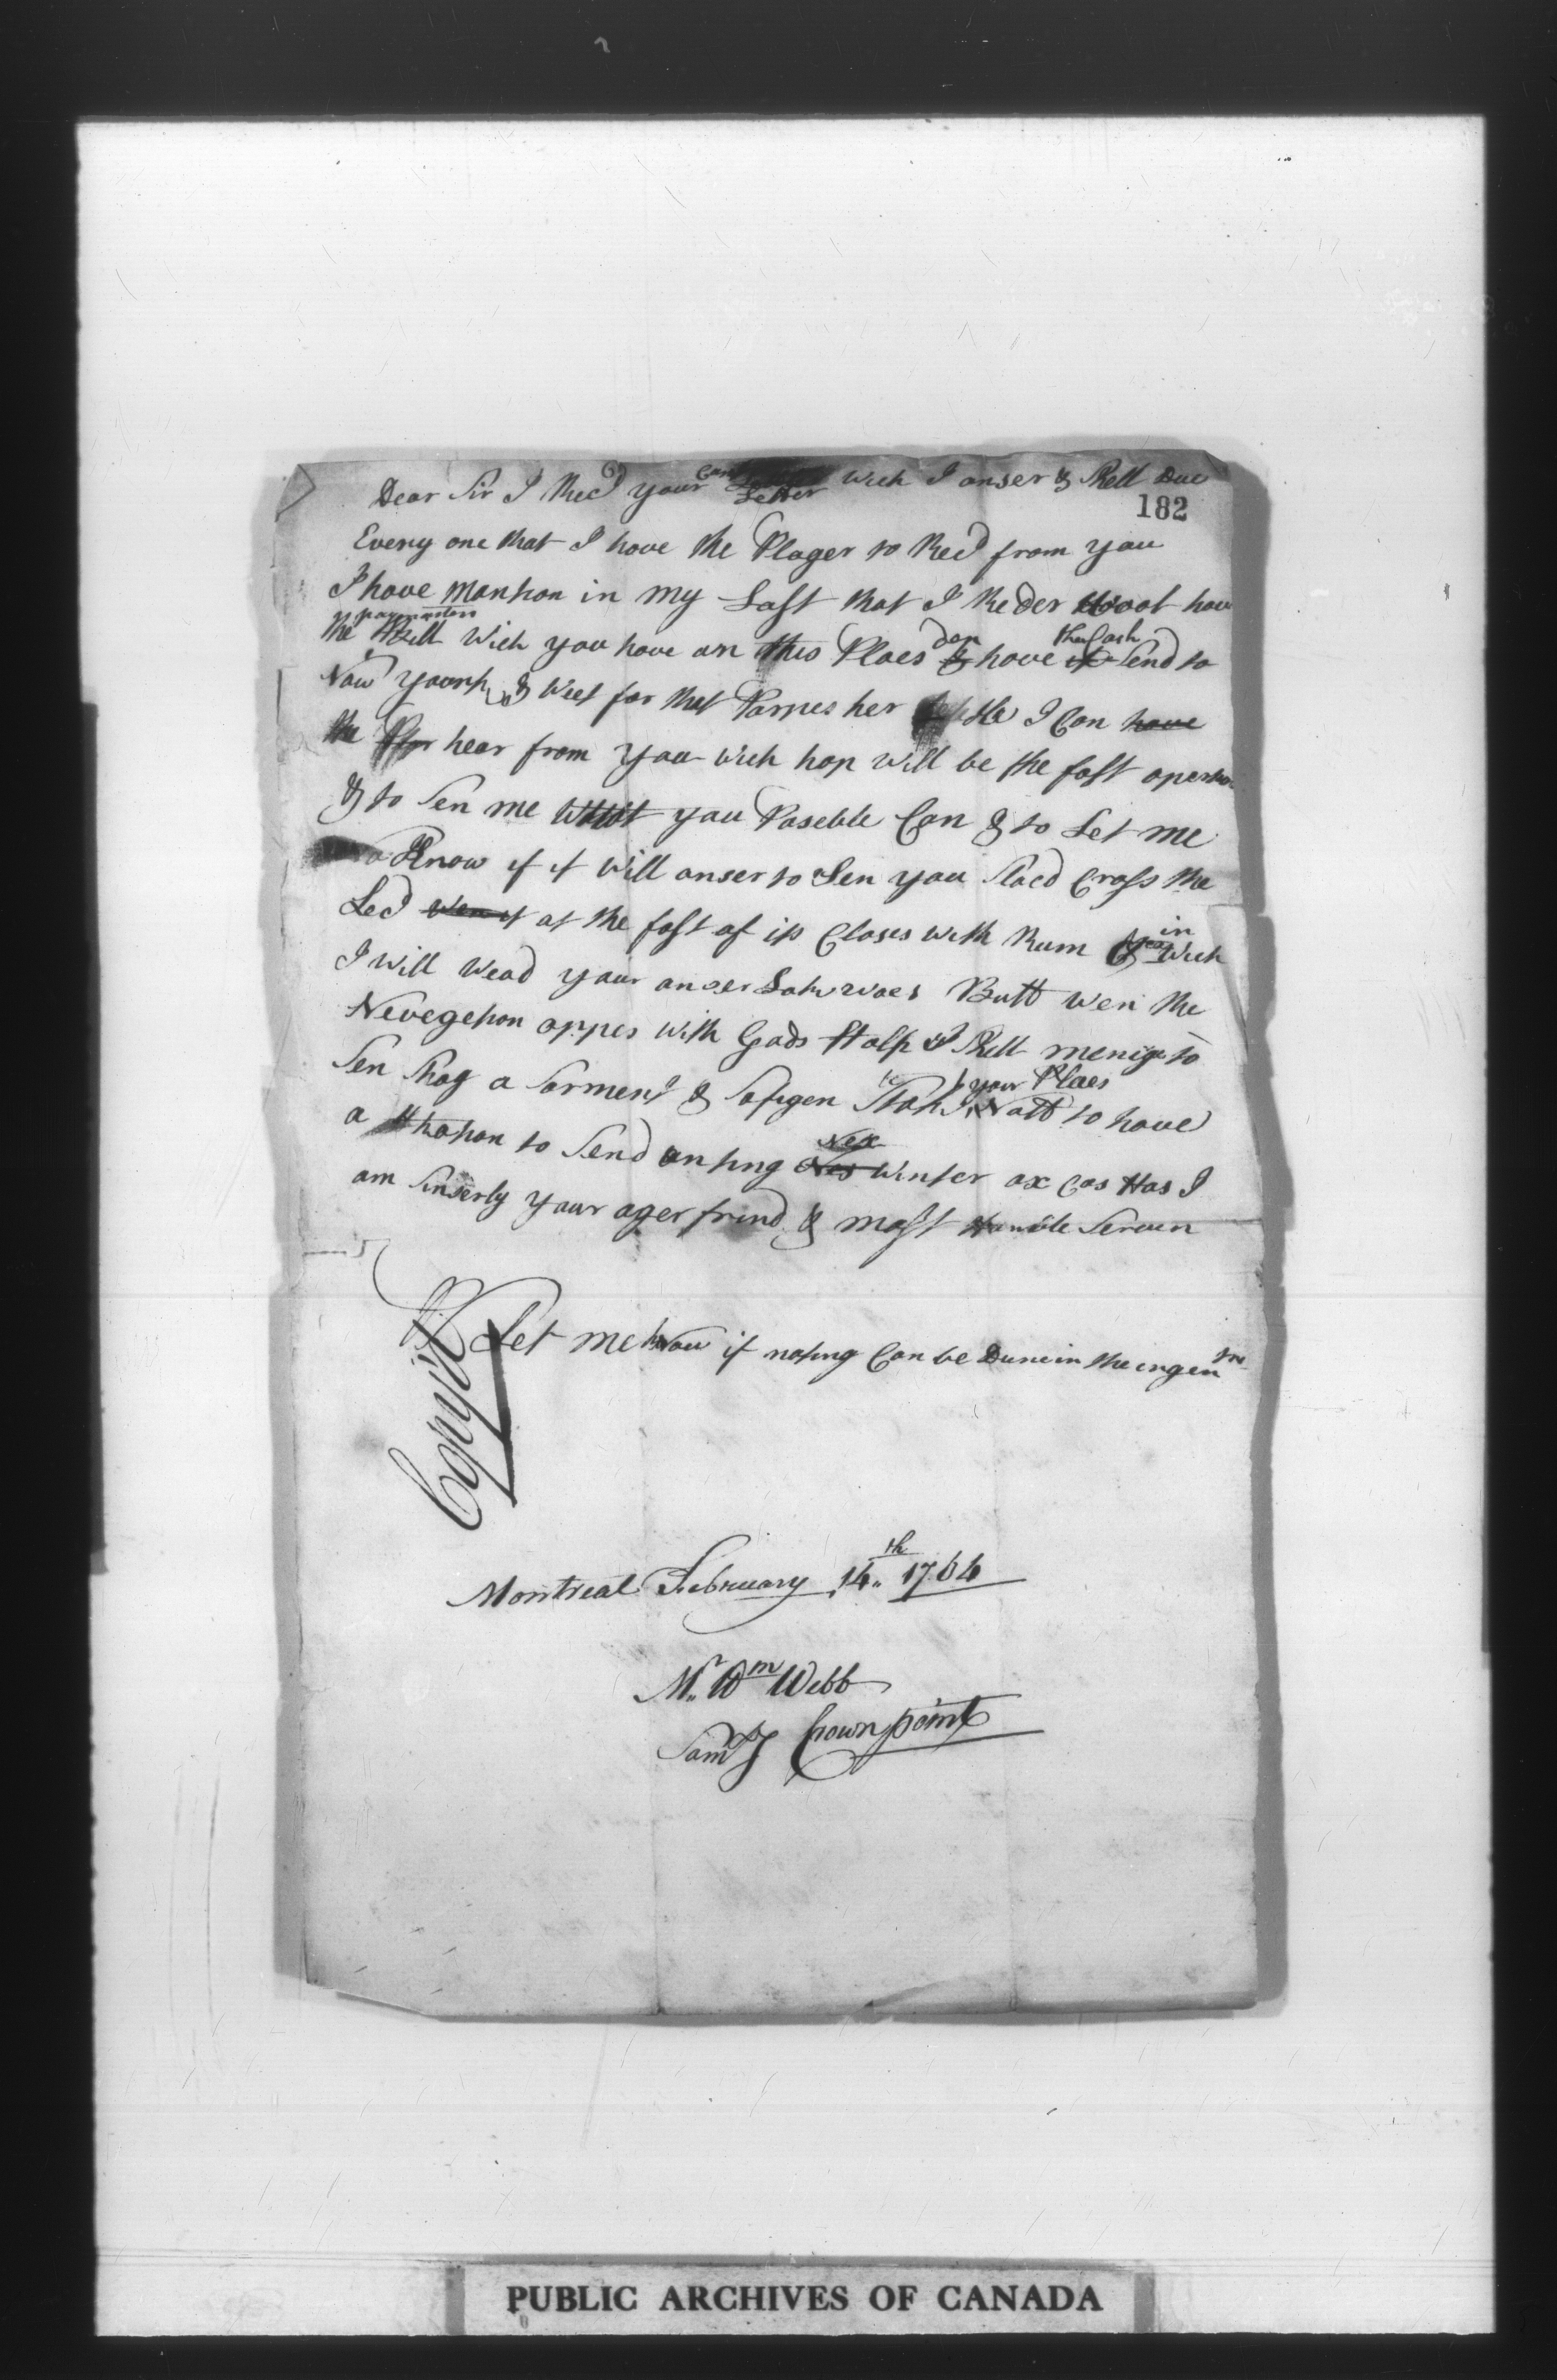 Dear Sir I Recd your Letter wich I anser & Shell Due
182
Every one that I have the Plager to Recd from you
I have Manhon in my Last that I Reder Woot have
the Bill Wich you have an this Plaes dan have the Cash Send to
New Yourk & Weet for thet Parpes her I Can have
the hear from you wich hop will be the fast opertu
& to Sen me What you Paseble Can & to Let me
Know if it Will anser to Sen you Slaed Crass the
Led wen it at the fast of its Closes with Rum & in Wich
I will Wead your anser Lahrwaes Butt wen the
Nevegehon oppes with Gads Halp I Shell menige to
Sen Shag a Sarment & Safigen Stak your Plaes Natt to have
a to Send anting Nex Winter ax cas Has I
am Sinserly your ager frend & mast Humble Serven
Let me know if nating Can be Dune in the ingen tre
Copyit
Montreal February 14th 1764
Mr Wm Webb
Crown point
PUBLIC ARCHIVES OF CANADA